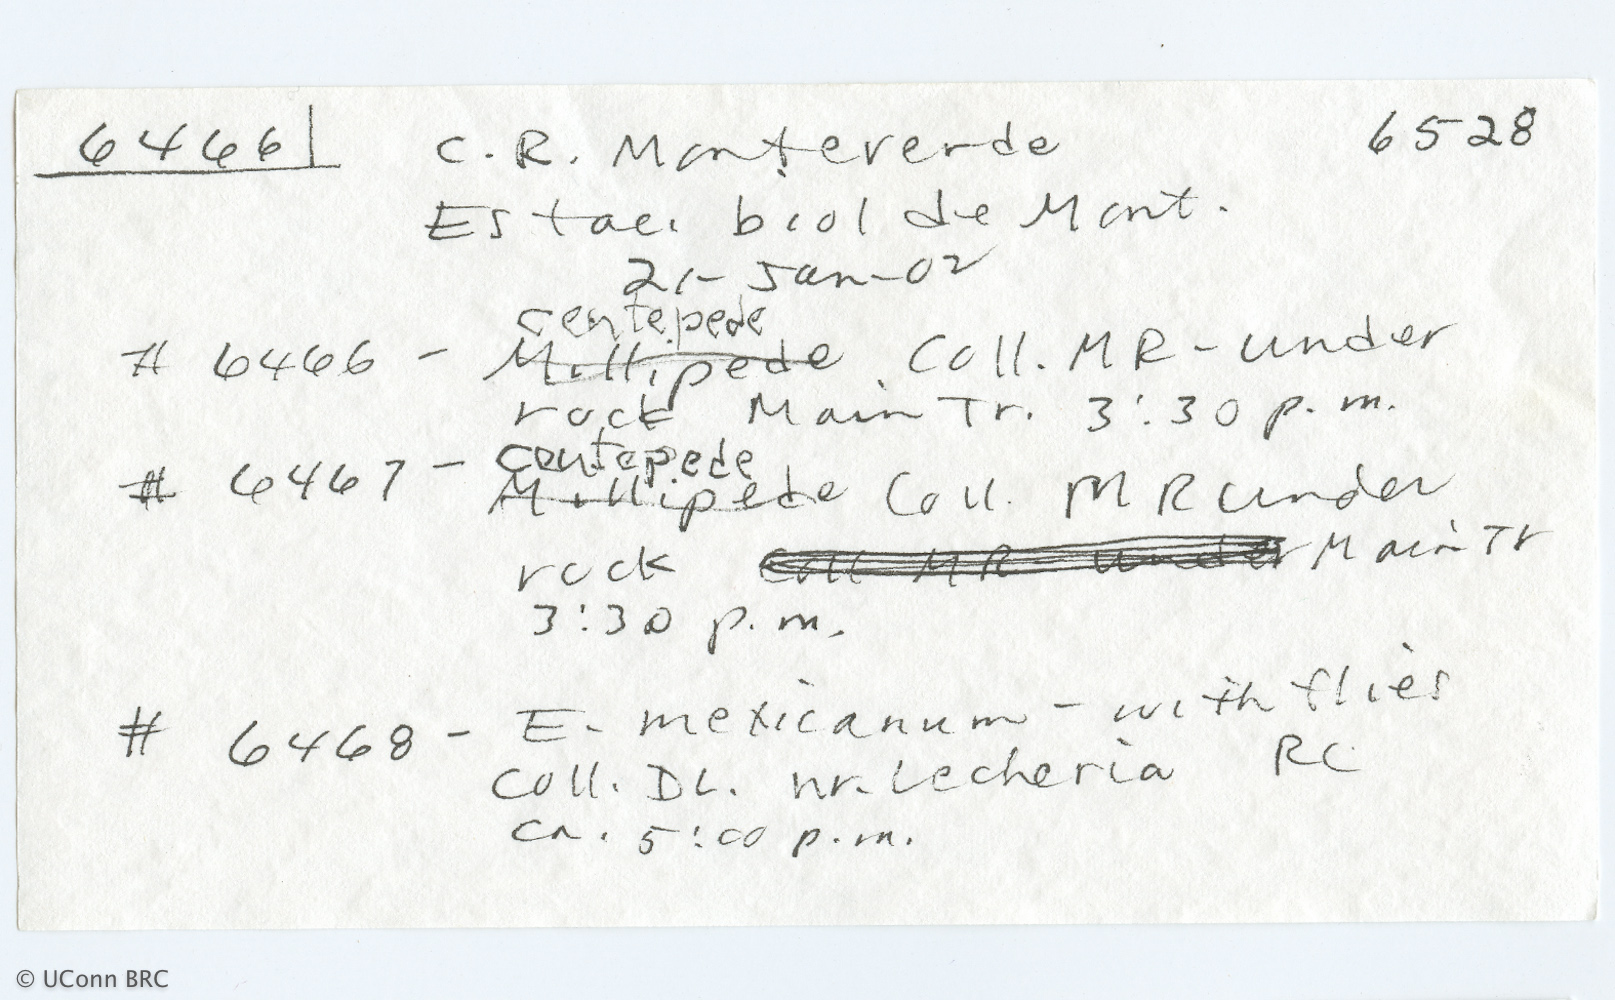 6466 C.R. Monteverde 6528
Estac. biol de Mont.
21-Jan-02
centepede
# 6466 - Millipede Coll. MR - under
rock Main Tr. 3:30 p.m.
centepede
# 6467 - Millipede Coll. MR under
rock Coll MR under Main Tr
3:30 p.m.
# 6468 - E. mexicanum - with flies
Coll. DL. nr. Lecheria RC
ca. 5:00 p.m.
© UConn BRC